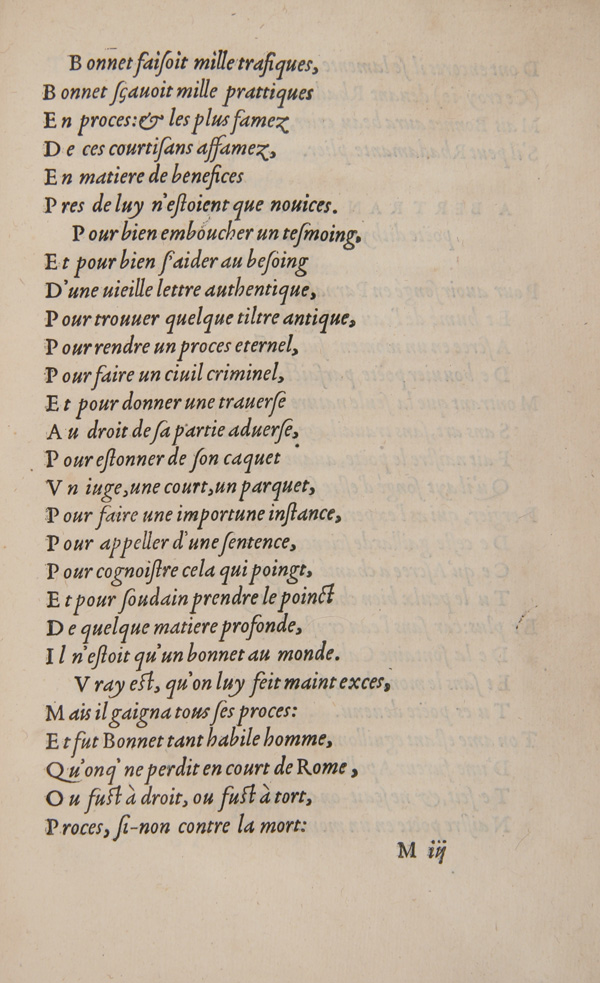 Bonnet faiſoit mille trafiques,
Bonnet ſçauoit mille prattiques
En proces: & les plus famez
De ces courtiſans affamez,
En matiere de benefices
Pres de luy n'eſtoient que nouices.
Pour bien emboucher un teſmoing,
Et pour bien ſ'aider au beſoing
D'une uieille lettre authentique,
Pour trouuer quelque tiltre antique,
Pour rendre un proces eternel,
Pour faire un ciuil criminel,
Et pour donner une trauerſe
Au droit de ſa partie aduerſe,
Pour eſtonner de ſon caquet
Vn iuge, une court, un parquet,
Pour faire une importune inſtance,
Pour appeller d'une ſentence,
Pour cognoiſtre cela qui poingt,
Et pour ſoudain prendre le poinct
De quelque matiere profonde,
Il n'eſtoit qu'un bonnet au monde.
Vray eſt, qu'on luy feit maint exces,
Mais il gaigna tous ſes proces:
Et fut Bonnet tant habile homme,
Qu'onq' ne perdit en court de Rome,
Ou fuſt à droit, ou fuſt à tort,
Proces, ſi-non contre la mort:
M iij